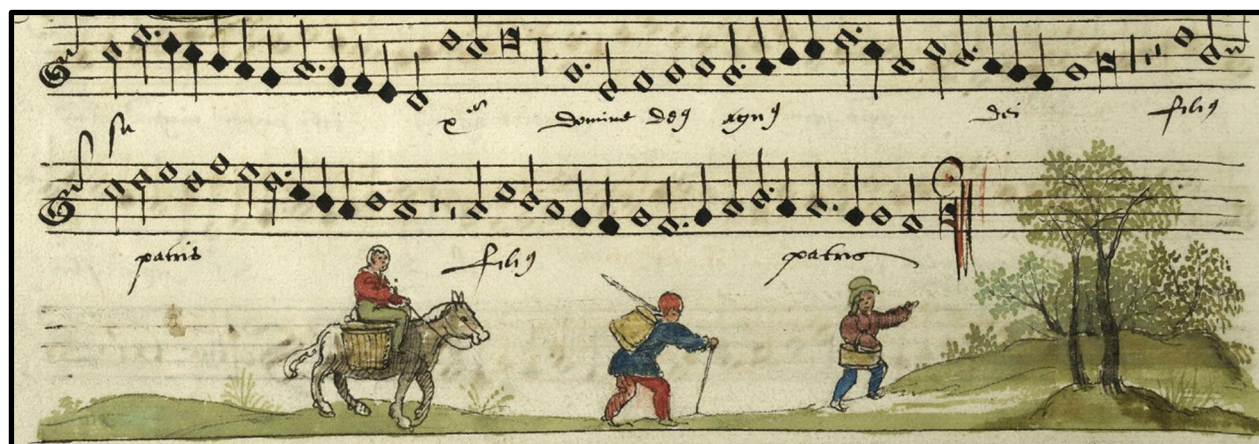 su xps domine de9 agn9 dei fili9
patris fili9 patris